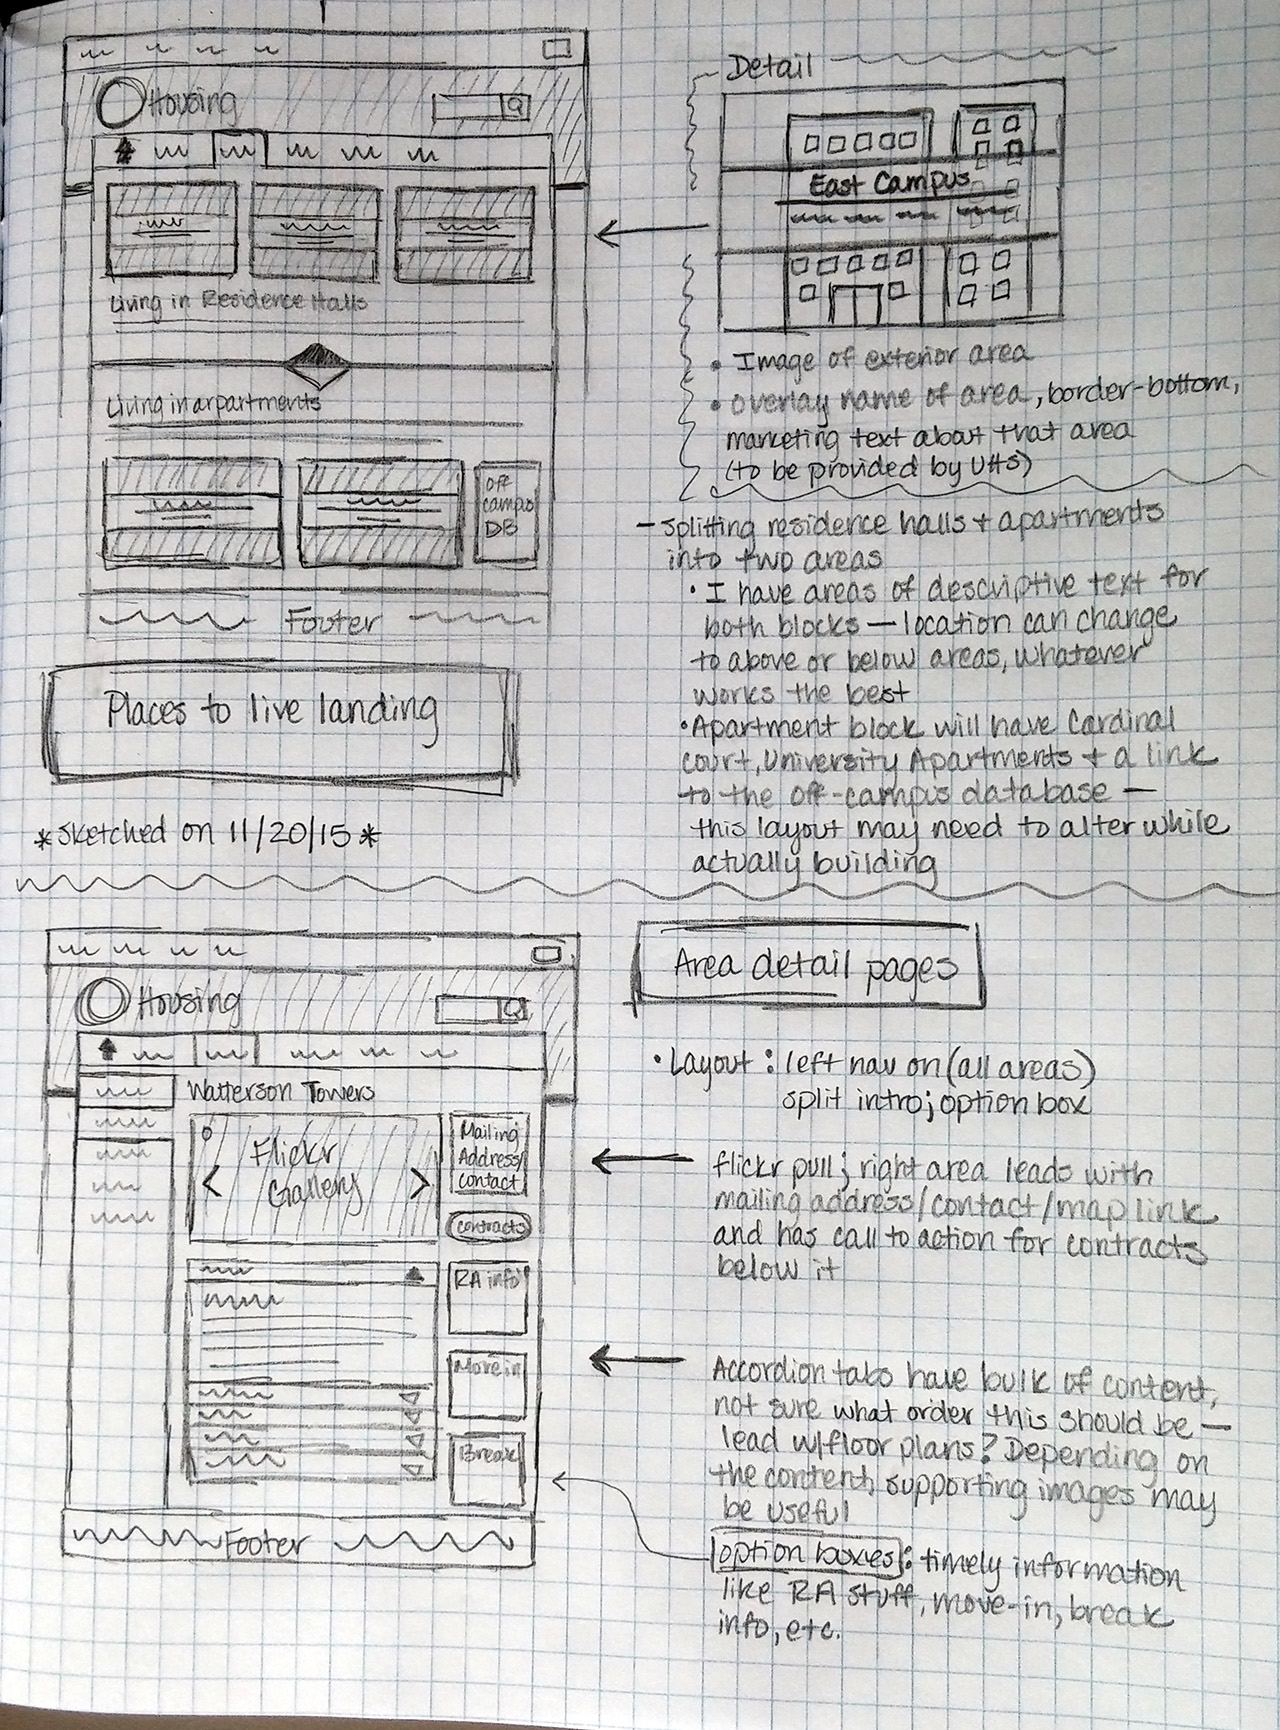 Housing
Living in Residence Halls
Living in arpartments
off
campus
DB
Footer
Places to live landing
*sketched on 11/20/15*
Detail
East Campus
• Image of exterior area
• overlay name of area, border-bottom,
marketing text about that area
(to be provided by UHS)
- splitting residence halls + apartments
into two areas
• I have areas of descriptive text for
both blocks — location can change
to above or below areas, whatever
works the best
• Apartment block will have Cardinal
court, University Apartments + a link
to the off-campus database —
this layout may need to alter while
actually building
Housing
Watterson Towers
Flickr
Gallery
Mailing
Address/
contact
contracts
RA info
Move in
Break
Footer
Area detail pages
• Layout: left nav on (all areas)
split intro; option box
flickr pull; right area leads with
mailing address/contact/map link
and has call to action for contracts
below it
Accordion tabs have bulk of content,
not sure what order this should be —
lead w/floor plans? Depending on
the content, supporting images may
be useful
option boxes: timely information
like RA stuff, move-in, break
info, etc.